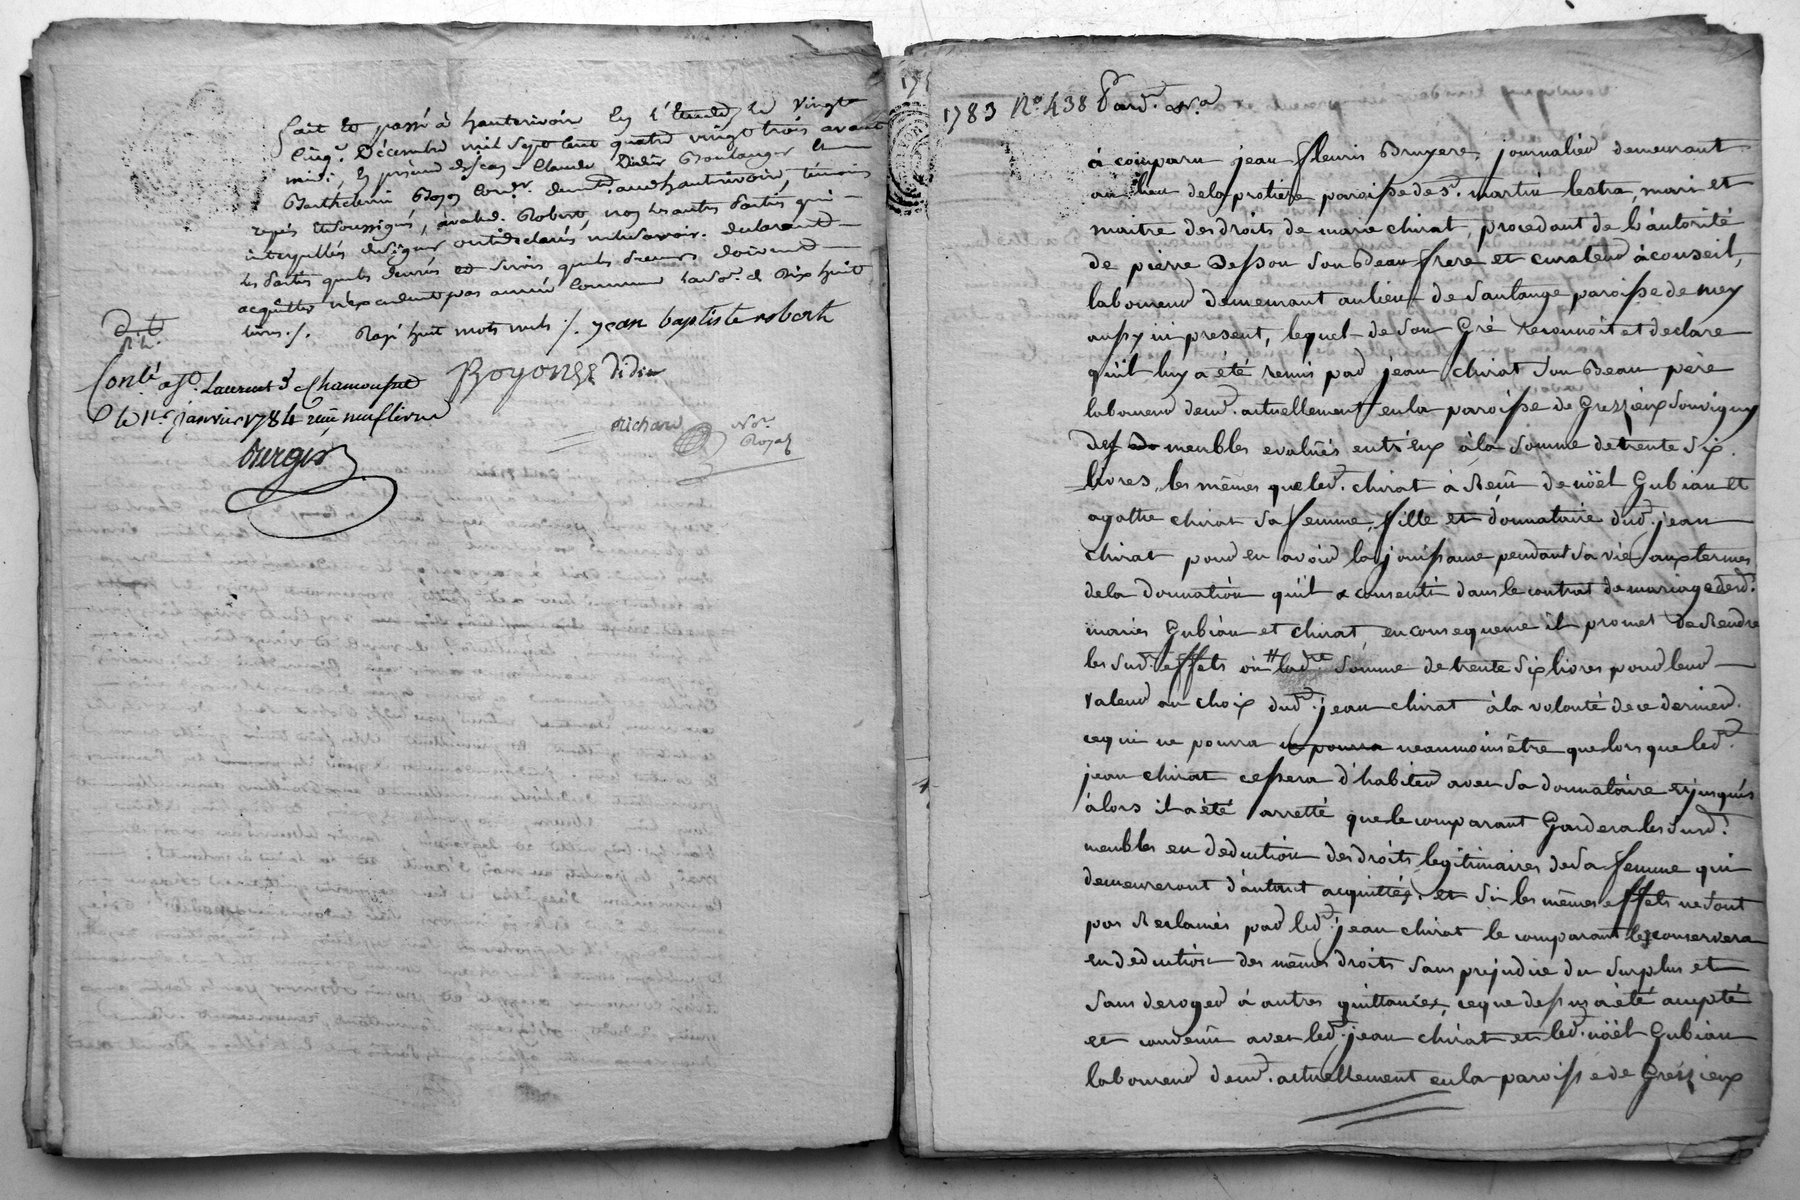 fait et passé à hauterivoire En l'Etude le vingt
Cinq.e Décembre mil sept Cent quatre vingt trois avant
midi, En présence de Claude Didier Boulanger et
Barthelemi Royon Cord.r demt. audit hauterivoire, témoins
requis et soussignés, avec led. Robert, non les autres parties qui
interpellés de signer ont déclarés ne le savoir. declarant
les parties que les denrées et servis que les preneurs doivent
acquitter n'excedent pas année commune la so.e de Dix huit
livres ./. Rayé huit mots nuls ./. jean baptiste robert
Royon Didier
Conlé. a St. Laurent de Chamousset
le 1er. janvier 1784 reçu neuf livres
Richard No.re Royal
1783 N.o 438 Pard.t No.e
à comparu jean fleuris Bruyere, journalier demeurant
au lieu de la protiere paroisse de St. martin lestra, mari et
maitre des droits de marie chirat, procedant de l'autorité
de pierre Besson son Beau frere et curateur à conseil,
laboureur demeurant au lieu de Saulange paroisse de mey
aussy ici present, lequel de son Gré reconnoit et declare
qu'il luy a été remis par jean chirat son Beau pere
laboureur dem.t actuellement en la paroisse de Grezieux Souvigny
des meubles evalués entr'eux à la somme de trente six
livres, les mêmes que led. chirat à Reçu de nöel Gubian et
agathe chirat sa femme, fille et donnataire dud. jean
chirat pour en avoir la jouissance pendant sa vie aux termes
de la donnation qu'il a consenti dans le contrat de mariage desd.
mariés Gubian et chirat, en consequence il promet de Rendre
les sud. effets ou lad.te somme de trente six livres pour leur
valeur au choix dud. jean chirat à la volonté de ce dernier.
ce qui ne pourra ne pourra neanmoins être que lors que led.
jean chirat cessera d'habiter avec sa donnataire et jusqu'es
à lors il a été arretté que le comparant Gardera les surd.
meubles en deduction des droits legitimaires de sa femme qui
demeureront d'autant acquittés, et si les mêmes effets ne sont
pas Reclamés par led. jean chirat le comparant les conservera
en deduction des mêmes droits sans prejudice du surplus et
sans deroger à autres quittances, ce que dessus a été accepté
et convenu avec led. jean chirat et led. nöel Gubian
laboureur dem.t actuellement en la paroisse de Grezieux